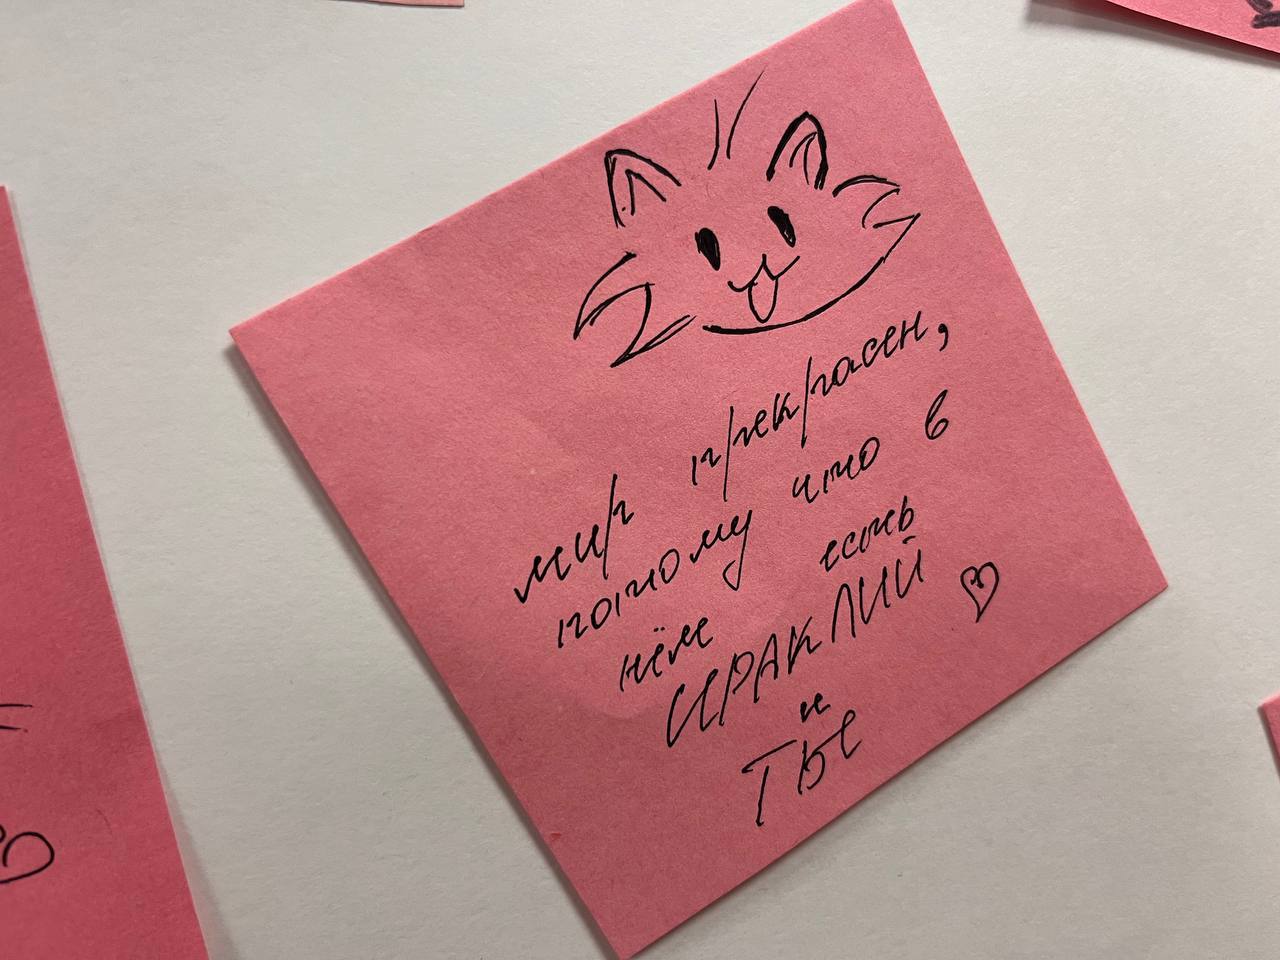 мир прекрасен,
потому что в
нём есть
ИРАКЛИЙ
и
ТЫ